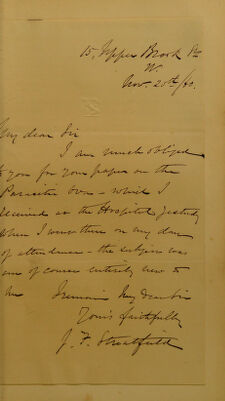 15, Upper Brook St
W.
Nov. 20th /80.
My dear Sir
I am much obliged
to you for your paper on the
Parasitic Ova – which I
received at the Hospital yesterday
when I was there on my day
of attendance – the subject was
one of course entirely new to
me I remain My dear Sir
Yours faithfully
J. F. Streatfeild